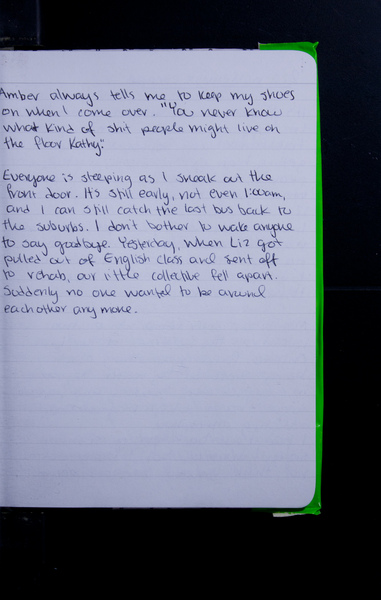 Amber always tells me to keep my shoes
on when I come over. "You never know
what kind of shit people might live on
the floor Kathy."
Everyone is sleeping as I sneak out the
front door. It's still early, not even 1:00am,
and I can still catch the last bus back to
the suburbs. I don't bother to wake anyone
to say goodbye. Yesterday, when Liz got
pulled out of English class and sent off
to rehab, our little collective fell apart.
Suddenly no one wanted to be around
each other any more.